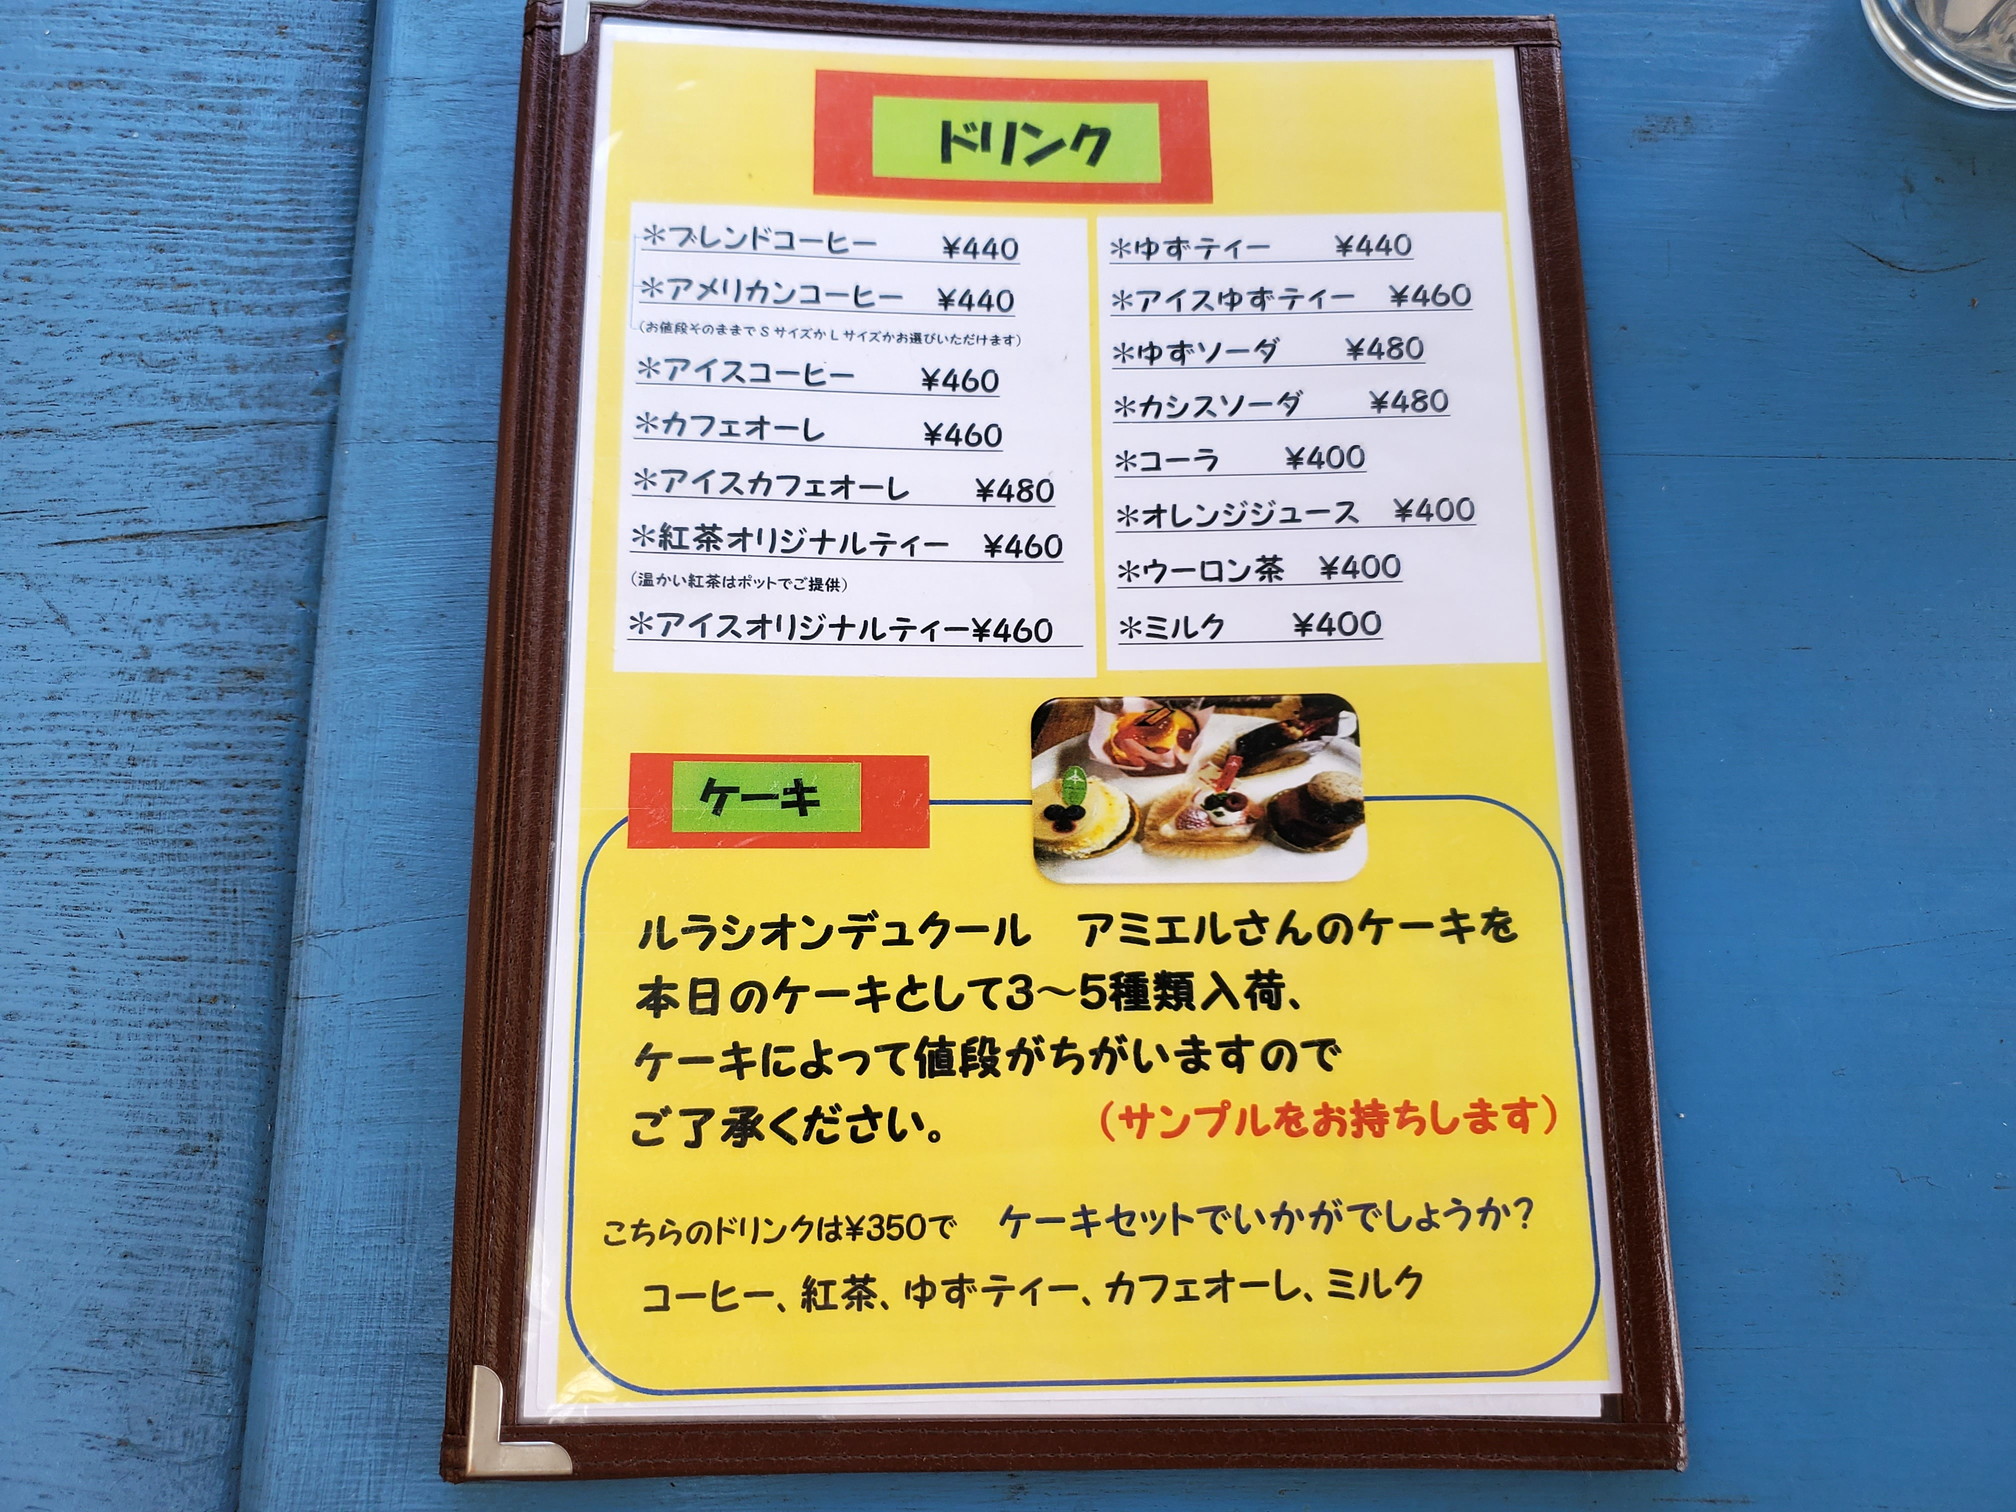 ドリンク
＊ブレンドコーヒー ¥440
＊アメリカンコーヒー ¥440
（お値段そのままでSサイズかLサイズかお選びいただけます）
＊アイスコーヒー ¥460
＊カフェオーレ ¥460
＊アイスカフェオーレ ¥480
＊紅茶オリジナルティー ¥460
（温かい紅茶はポットでご提供）
＊アイスオリジナルティー¥460
＊ゆずティー ¥440
＊アイスゆずティー ¥460
＊ゆずソーダ ¥480
＊カシスソーダ ¥480
＊コーラ ¥400
＊オレンジジュース ¥400
＊ウーロン茶 ¥400
＊ミルク ¥400
ケーキ
ルラシオンデュクール　アミエルさんのケーキを
本日のケーキとして3〜5種類入荷、
ケーキによって値段がちがいますので
ご了承ください。 （サンプルをお持ちします）
こちらのドリンクは¥350で ケーキセットでいかがでしょうか?
コーヒー、紅茶、ゆずティー、カフェオーレ、ミルク